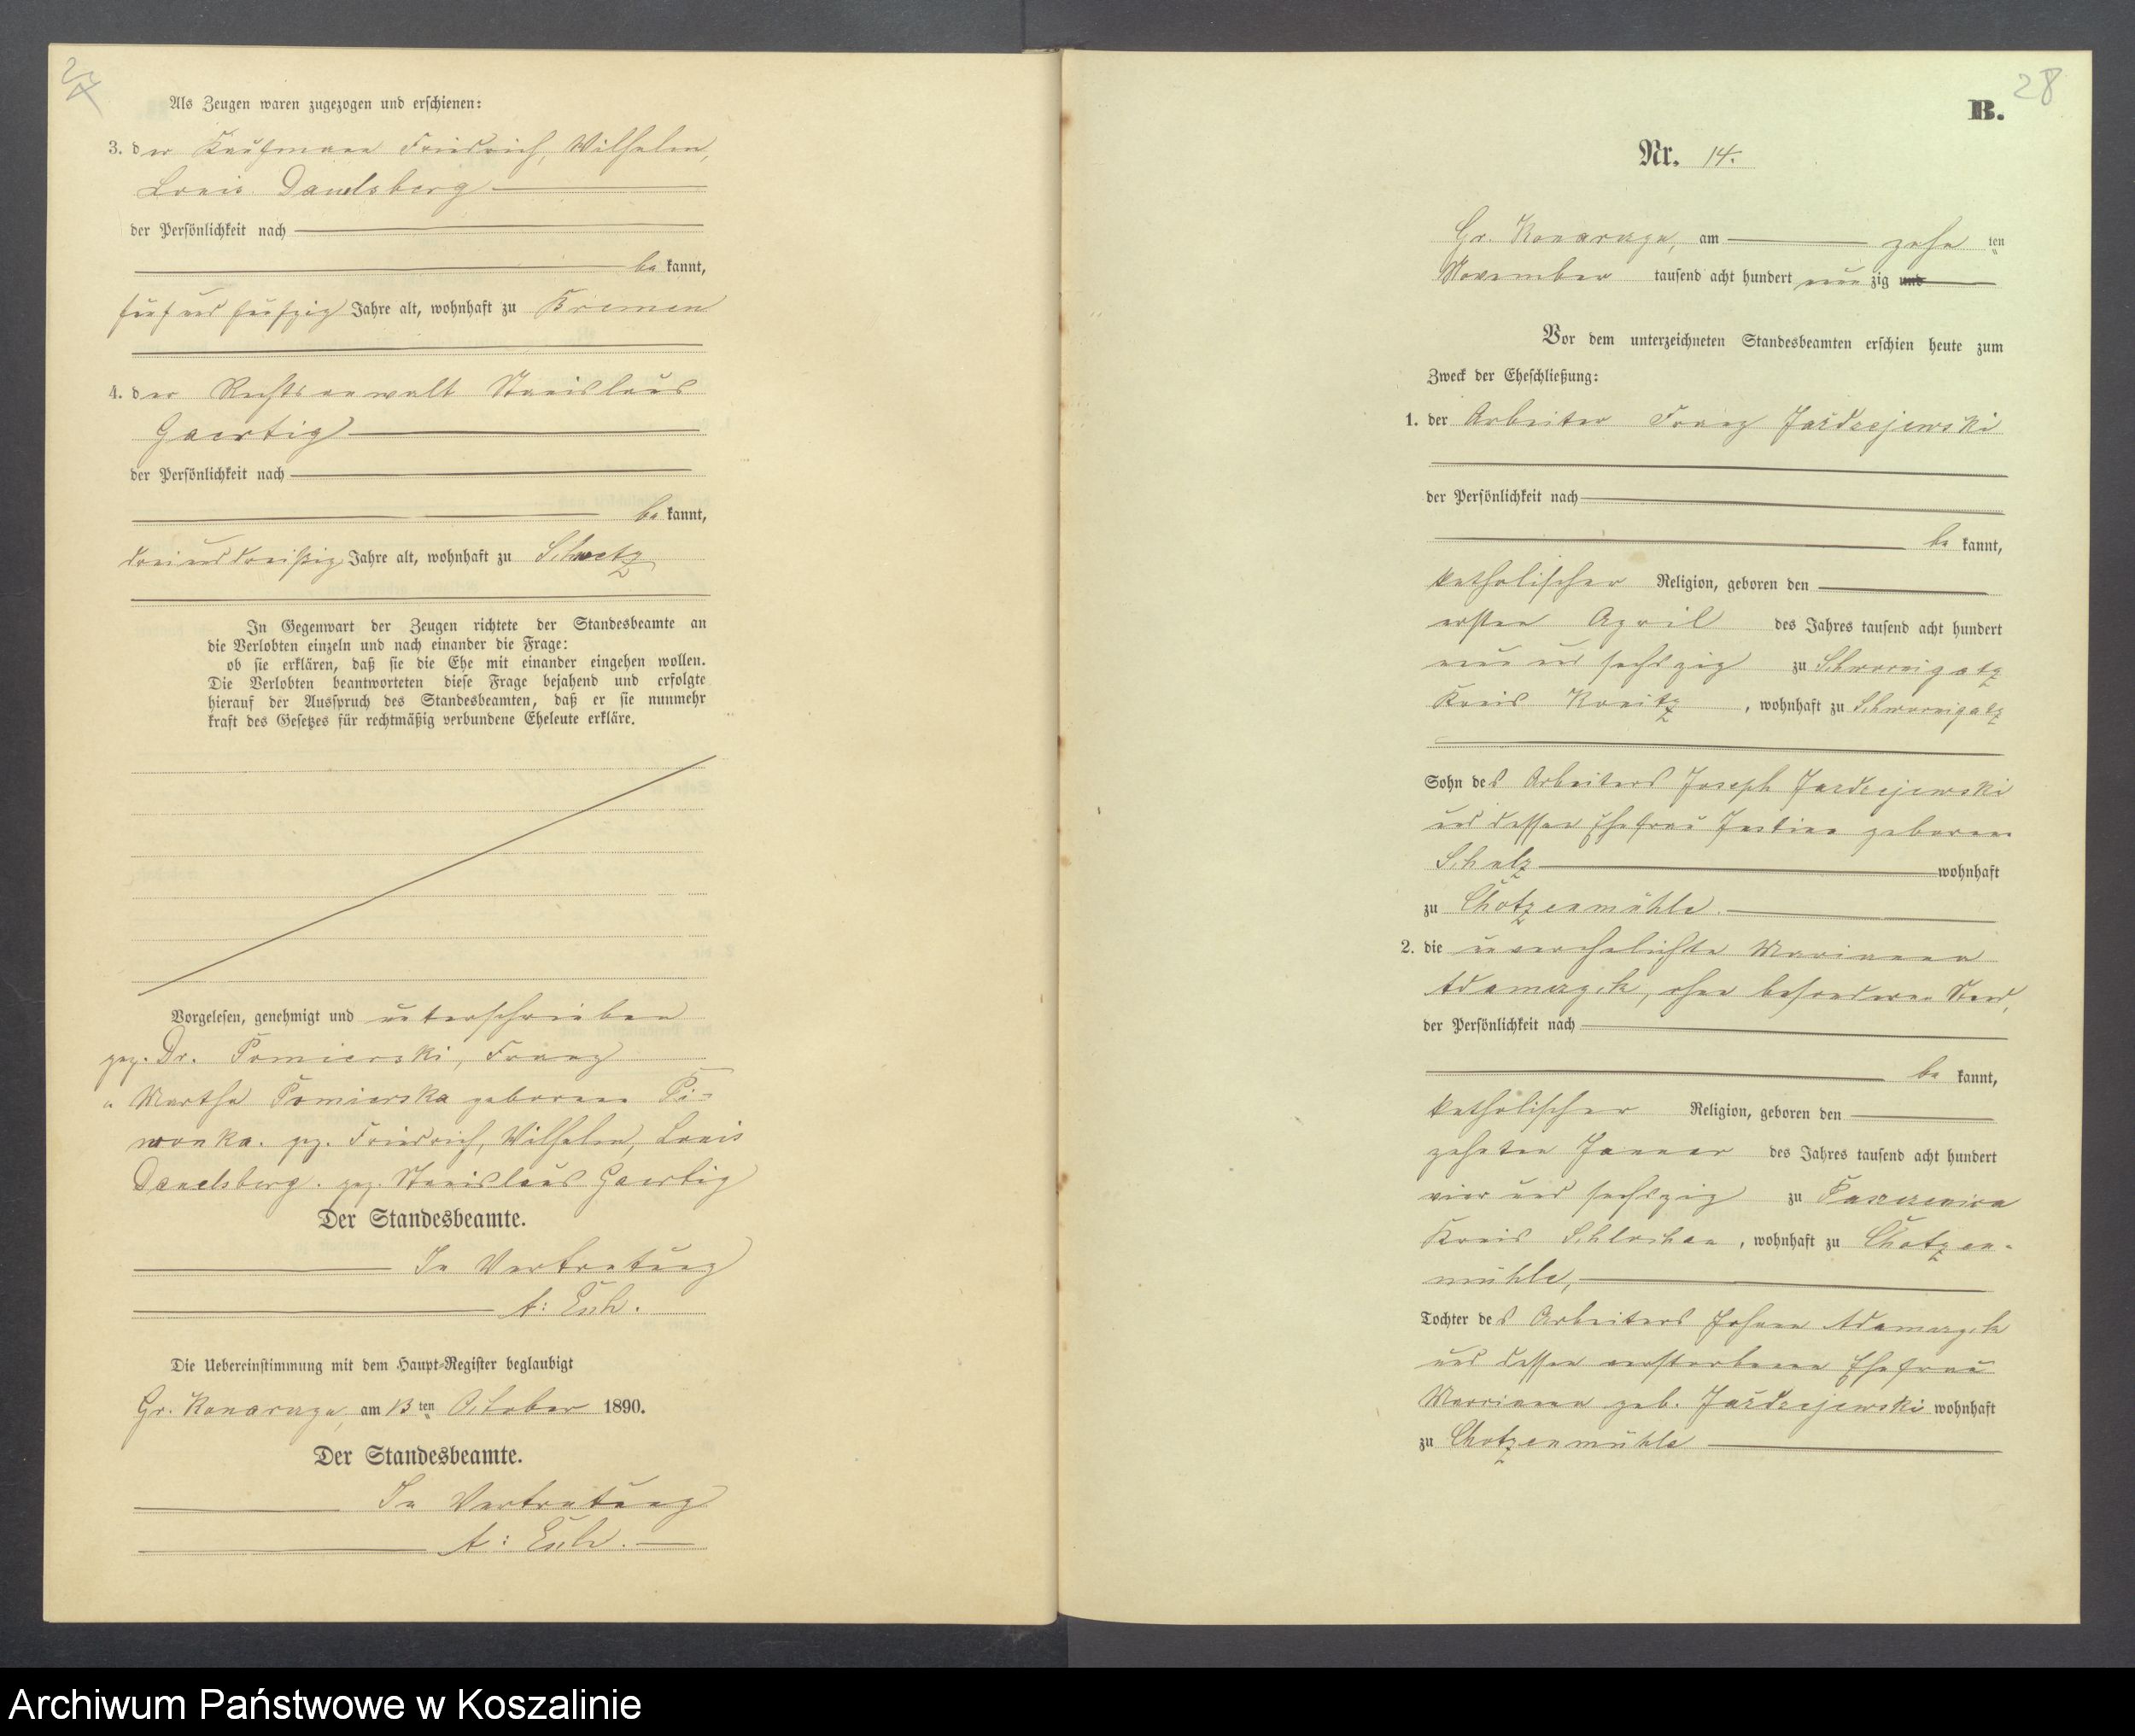 27
Als Zeugen waren zugezogen und erschienen:
3. der Kaufmann Friedrich, Wilhelm,
Louis Danelsberg
der Persönlichkeit nach
be kannt,
fünf und fünfzig Jahre alt, wohnhaft zu Bremen
4. der Rechtsanwalt Stanislaus
Gaertig
der Persönlichkeit nach
be kannt,
drei und dreißig Jahre alt, wohnhaft zu Schwetz
In Gegenwart der Zeugen richtete der Standesbeamte an
die Verlobten einzeln und nach einander die Frage:
ob sie erklären, daß sie die Ehe mit einander eingehen wollen.
Die Verlobten beantworteten diese Frage bejahend und erfolgte
hierauf der Ausspruch des Standesbeamten, daß er sie nunmehr
kraft des Gesetzes für rechtmäßig verbundene Eheleute erkläre.
Vorgelesen, genehmigt und unterschrieben
gez. Dr. Pomierski, Franz
" Martha Pomierska geborene Pi=
wonka. gez. Friedrich, Wilhelm, Louis
Danelsberg. gez. Stanislaus Gaertig
Der Standesbeamte.
In Vertretung
A: Esch.
Die Uebereinstimmung mit dem Haupt-Register beglaubigt
Gr. Konarczyn, am 13 ten October 1890.
Der Standesbeamte.
In Vertretung
A: Esch.
28
B.
Nr. 14.
Gr. Konarczyn, am zehn ten
November tausend acht hundert neun zig und
Vor dem unterzeichneten Standesbeamten erschien heute zum
Zweck der Eheschließung:
1. der Arbeiter Franz Jażdzejewski
der Persönlichkeit nach
be kannt,
katholischer Religion, geboren den
ersten April des Jahres tausend acht hundert
neun und sechszig zu Schwornigatz
Kreis Konitz, wohnhaft zu Schwornigatz
Sohn des Arbeiters Joseph Jazdzejewski
und dessen Ehefrau Justine geborene
Schulz wohnhaft
zu Chotzenmühle.
2. die unverehelichte Marianna
Adamczyk, ohne besonderen Stand,
der Persönlichkeit nach
be kannt,
katholischer Religion, geboren den
zehnten Januar des Jahres tausend acht hundert
vier und sechszig zu
Kreis Schlochau, wohnhaft zu Chotzen-
mühle,
Tochter des Arbeiters Johann Adamczyk
und dessen verstorbenen Ehefrau
Marianna geb. Jażdzejewski wohnhaft
zu Chotzenmühle
Archiwum Państwowe w Koszalinie